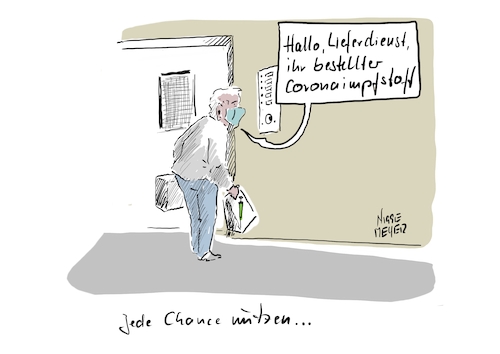 Hallo, Lieferdienst,
ihr bestellter
Coronaimpfstoff
jede Chance nützen...